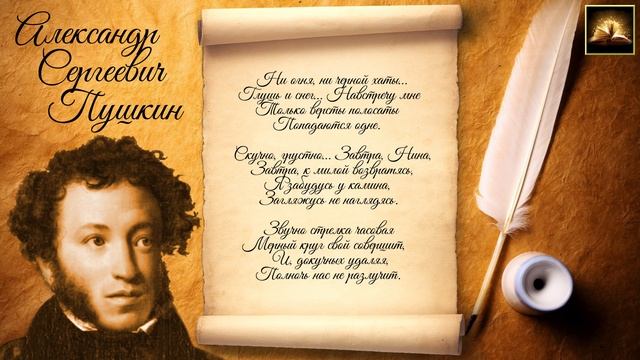 Александр
Сергеевич
Пушкин
Ни огня, ни черной хаты...
Глушь и снег... Навстречу мне
Только версты полосаты
Попадаются одне.
Скучно, грустно... Завтра, Нина,
Завтра, к милой возвратясь,
Я забудусь у камина,
Загляжусь не наглядясь.
Звучно стрелка часовая
Мерный круг свой совершит,
И, докучных удаляя,
Полночь нас не разлучит.